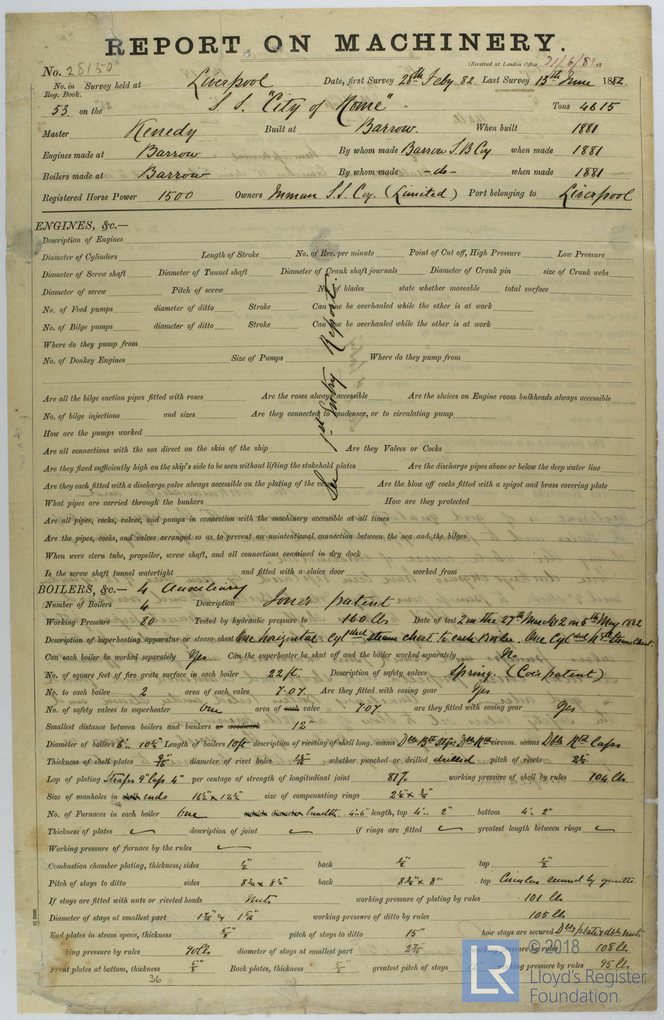 REPORT ON MACHINERY.
No. 28150
(Received at London Office 21/6/82 18
No. in Survey held at Liverpool Date, first Survey 28th Feby. 82 Last Survey 13th June 1882
Reg. Book.
53 on the S.S. "City of Rome" Tons 4615
Master Kenedy Built at Barrow. When built 1881
Engines made at Barrow By whom made Barrow S.B Coy when made 1881
Boilers made at Barrow By whom made -do- when made 1881
Registered Horse Power 1500 Owners Inman S.S. Coy. (Limited) Port belonging to Liverpool
ENGINES, &c.—
Description of Engines
Diameter of Cylinders Length of Stroke No. of Rev. per minute Point of Cut off, High Pressure Low Pressure
Diameter of Screw shaft Diameter of Tunnel shaft Diameter of Crank shaft journals Diameter of Crank pin size of Crank webs
Diameter of screw Pitch of screw No. of blades state whether moveable total surface
No. of Feed pumps diameter of ditto Stroke Can one be overhauled while the other is at work
No. of Bilge pumps diameter of ditto Stroke Can one be overhauled while the other is at work
Where do they pump from
No. of Donkey Engines Size of Pumps Where do they pump from
See 1st Entry Report
Are all the bilge suction pipes fitted with roses Are the roses always accessible Are the sluices on Engine room bulkheads always accessible
No. of bilge injections and sizes Are they connected to condenser, or to circulating pump
How are the pumps worked
Are all connections with the sea direct on the skin of the ship Are they Valves or Cocks
Are they fixed sufficiently high on the ship's side to be seen without lifting the stokehold plates Are the discharge pipes above or below the deep water line
Are they each fitted with a discharge valve always accessible on the plating of the vessel Are the blow off cocks fitted with a spigot and brass covering plate
What pipes are carried through the bunkers How are they protected
Are all pipes, cocks, valves, and pumps in connection with the machinery accessible at all times
Are the pipes, cocks, and valves arranged so as to prevent an unintentional connection between the sea and the bilges
When were stern tube, propeller, screw shaft, and all connections examined in dry dock
Is the screw shaft tunnel watertight and fitted with a sluice door worked from
BOILERS, &c.— 4 Auxiliary
Number of Boilers 4 Description Jones patent
Working Pressure 80 Tested by hydraulic pressure to 160 lbs Date of test 2 on the 27th March & 2 on 5th May 1882
Description of superheating apparatus or steam chest One horizontal Cyl steam chest to each Boiler. One Cyl Steam Chest.
Can each boiler be worked separately Yes Can the superheater be shut off and the boiler worked separately No
No. of square feet of fire grate surface in each boiler 22 ft. Description of safety valves Spring. (Coe's patent)
No. to each boiler 2 area of each valve 7.07. Are they fitted with easing gear Yes
No. of safety valves to superheater One area of each valve 7.07 are they fitted with easing gear Yes
Smallest distance between boilers and bunkers or woodwork 12"
Diameter of boilers 6' 10½" Length of boilers 10ft description of riveting of shell long. seams circum. seams Dble Rtd Laps
Thickness of shell plates diameter of rivet holes whether punched or drilled drilled pitch of rivets
Lap of plating Straps 9" Laps 4" per centage of strength of longitudinal joint 81% working pressure of shell by rules 104 lbs
Size of manholes in shell ends size of compensating rings
No. of Furnaces in each boiler One outside diameter length, top 4'. 2" bottom 4'. 2"
Thickness of plates description of joint if rings are fitted greatest length between rings
Working pressure of furnace by the rules
Combustion chamber plating, thickness, sides ½" back ½" top ½"
Pitch of stays to ditto sides back top Circular secured by gussetts.
If stays are fitted with nuts or riveted heads Nuts working pressure of plating by rules 101 lbs
Diameter of stays at smallest part working pressure of ditto by rules 105 lbs
End plates in steam space, thickness 5/8" pitch of stays to ditto 15" how stays are secured Dble plates & dble nuts
king pressure by rules 90 lbs diameter of stays at smallest part working pressure by rules 108 lbs
Front plates at bottom, thickness 5/8" Back plates, thickness 5/8" greatest pitch of stays working pressure by rules 95 lbs
36
LR
© 2018
Lloyd's Register
Foundation